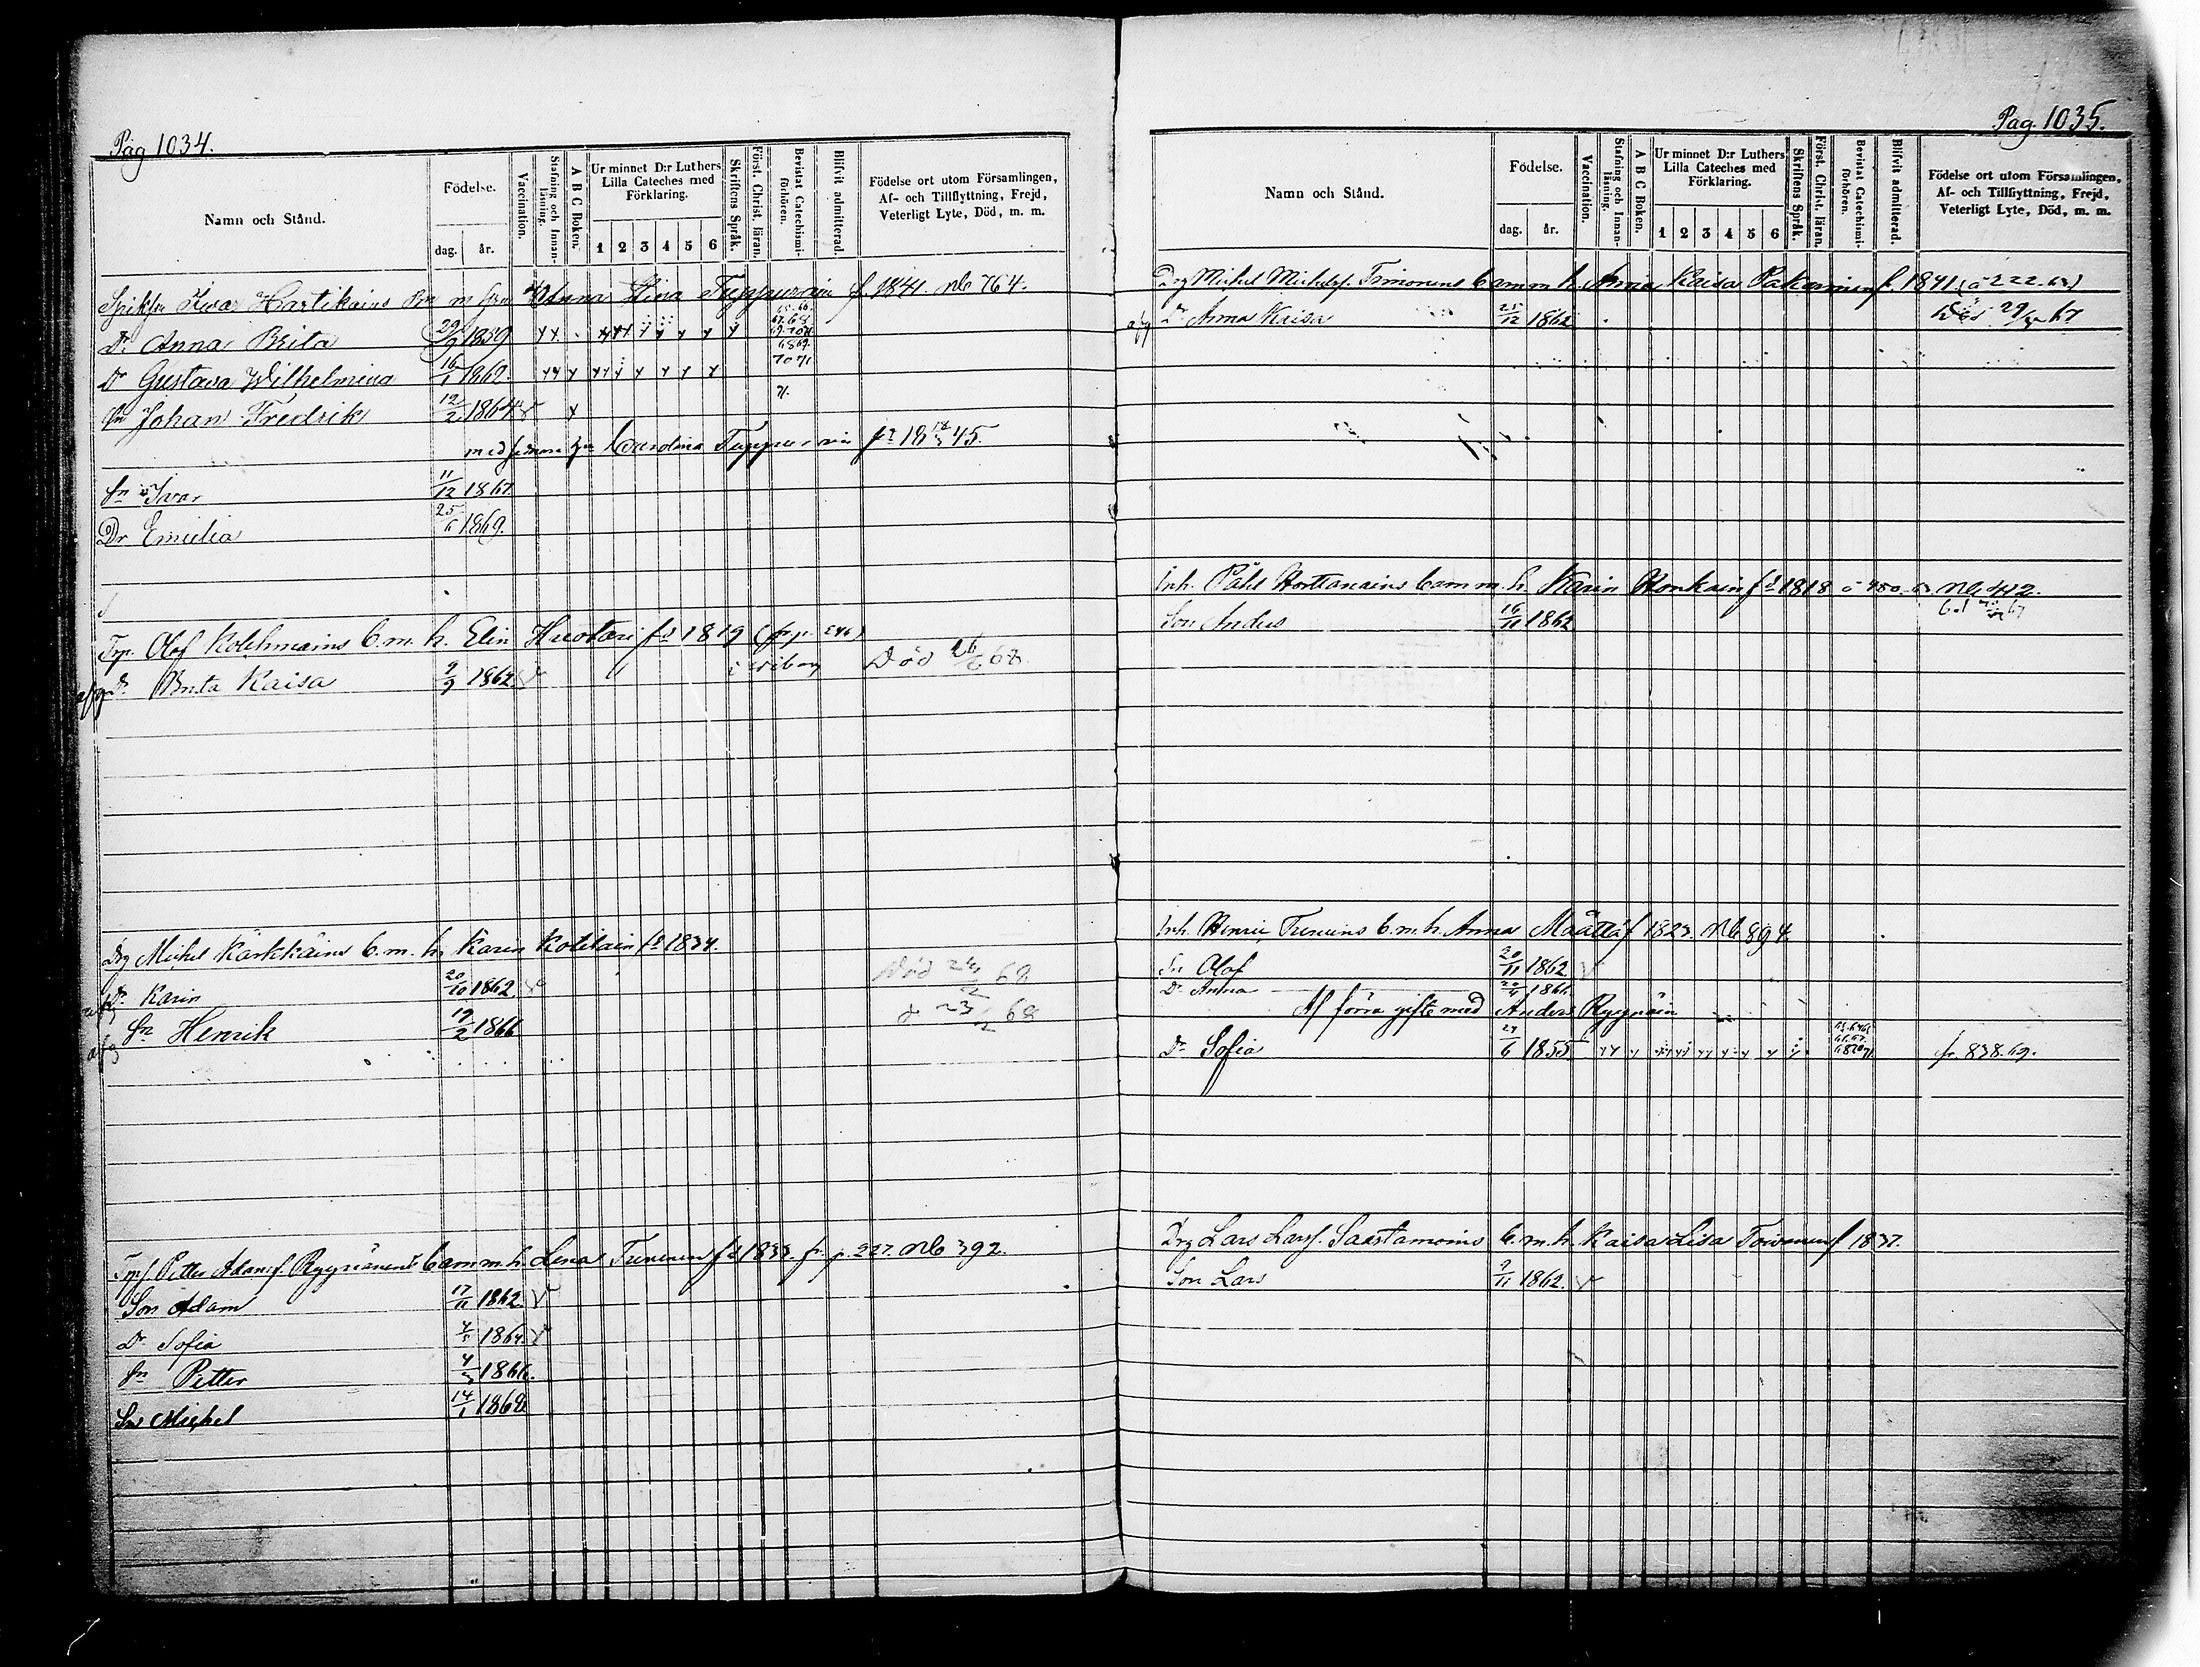 Pag 1034.
Namn och Stånd.
Födelse.
dag.
år.
Vaccination.
Stafning och Innan-
läsning.
A B C Boken.
Ur minnet D:r Luthers
Lilla Cateches med
Förklaring.
1 2 3 4 5 6
Skriftens Språk.
Först. Christ. läran.
Bevistat Catechismi-
förhören.
Blifvit admitterad.
Födelse ort utom Församlingen,
Af- och Tillflyttning, Frejd,
Veterligt Lyte, Död, m. m.
Ivar Hartikains Brn m Anna Stina Tuppurain f. 1841. No 764.
Dr Anna Brita 29/9 1859
Dr Gustava Wilhelmina 16/1 1862.
Sn Johan Fredrik 12/2 1864
med Carolina Tuppurain fd 18 45.
Sn Ivar 11/12 1867.
Dr Emilia 25/6 1869.
Trp. Olof Kolehmains B. m. h. Elin Huotari fd 1819 (fr p. 246)
afg Dr Brita Kaisa 9/9 1862 i Wiborg Död 26/6 68.
Drg Michel Kärkkäins B. m. h. Karin Kotilain fd 1834.
afg Dr Karin 20/10 1862. Död 24/2 68
afg Sn Henrik 19/2 1866 d 23/2 68
Trpf. Petter Adamsf. Ryynänens Barn m. h. Lena Turunen fd 1833. fr. p. 227. No 392.
Son Adam 17/11 1862.
Dr Sofia 4/5 1864.
Sn Petter 4/3 1866.
Son Michel 14/1 1868.
Pag. 1035.
Namn och Stånd.
Födelse.
dag.
år.
Vaccination.
Stafning och Innan-
läsning.
A B C Boken.
Ur minnet D:r Luthers
Lilla Cateches med
Förklaring.
1 2 3 4 5 6
Skriftens Språk.
Först. Christ. läran.
Bevistat Catechismi-
förhören.
Blifvit admitterad.
Födelse ort utom Församlingen,
Af- och Tillflyttning, Frejd,
Veterligt Lyte, Död, m. m.
Drg Michel Michelsf. Timonens Barn m. h. Anna Kaisa Pakarinen f. 1841
afg Dr Anna Kaisa 25/12 1862 Död 29/ 67
Inh. Påhl Horttanains Barn m. h. Karin Honkain fd 1818 No 412.
Son Anders 16/11 1862
Inh. Henric Turuins B. m. h. Anna Määttä f 1823. No 894.
Sn Olof 20/11 1862
Dr Anna 20/4 1866
Af förra gifte med Anders Ryynäin
Dr Sofia 29/6 1855 fr. 838. 69.
Drg Lars Larsf. Saastamoins B. m. h. Kaisa Lisa Toivanen f 1837.
Son Lars 9/11 1862.